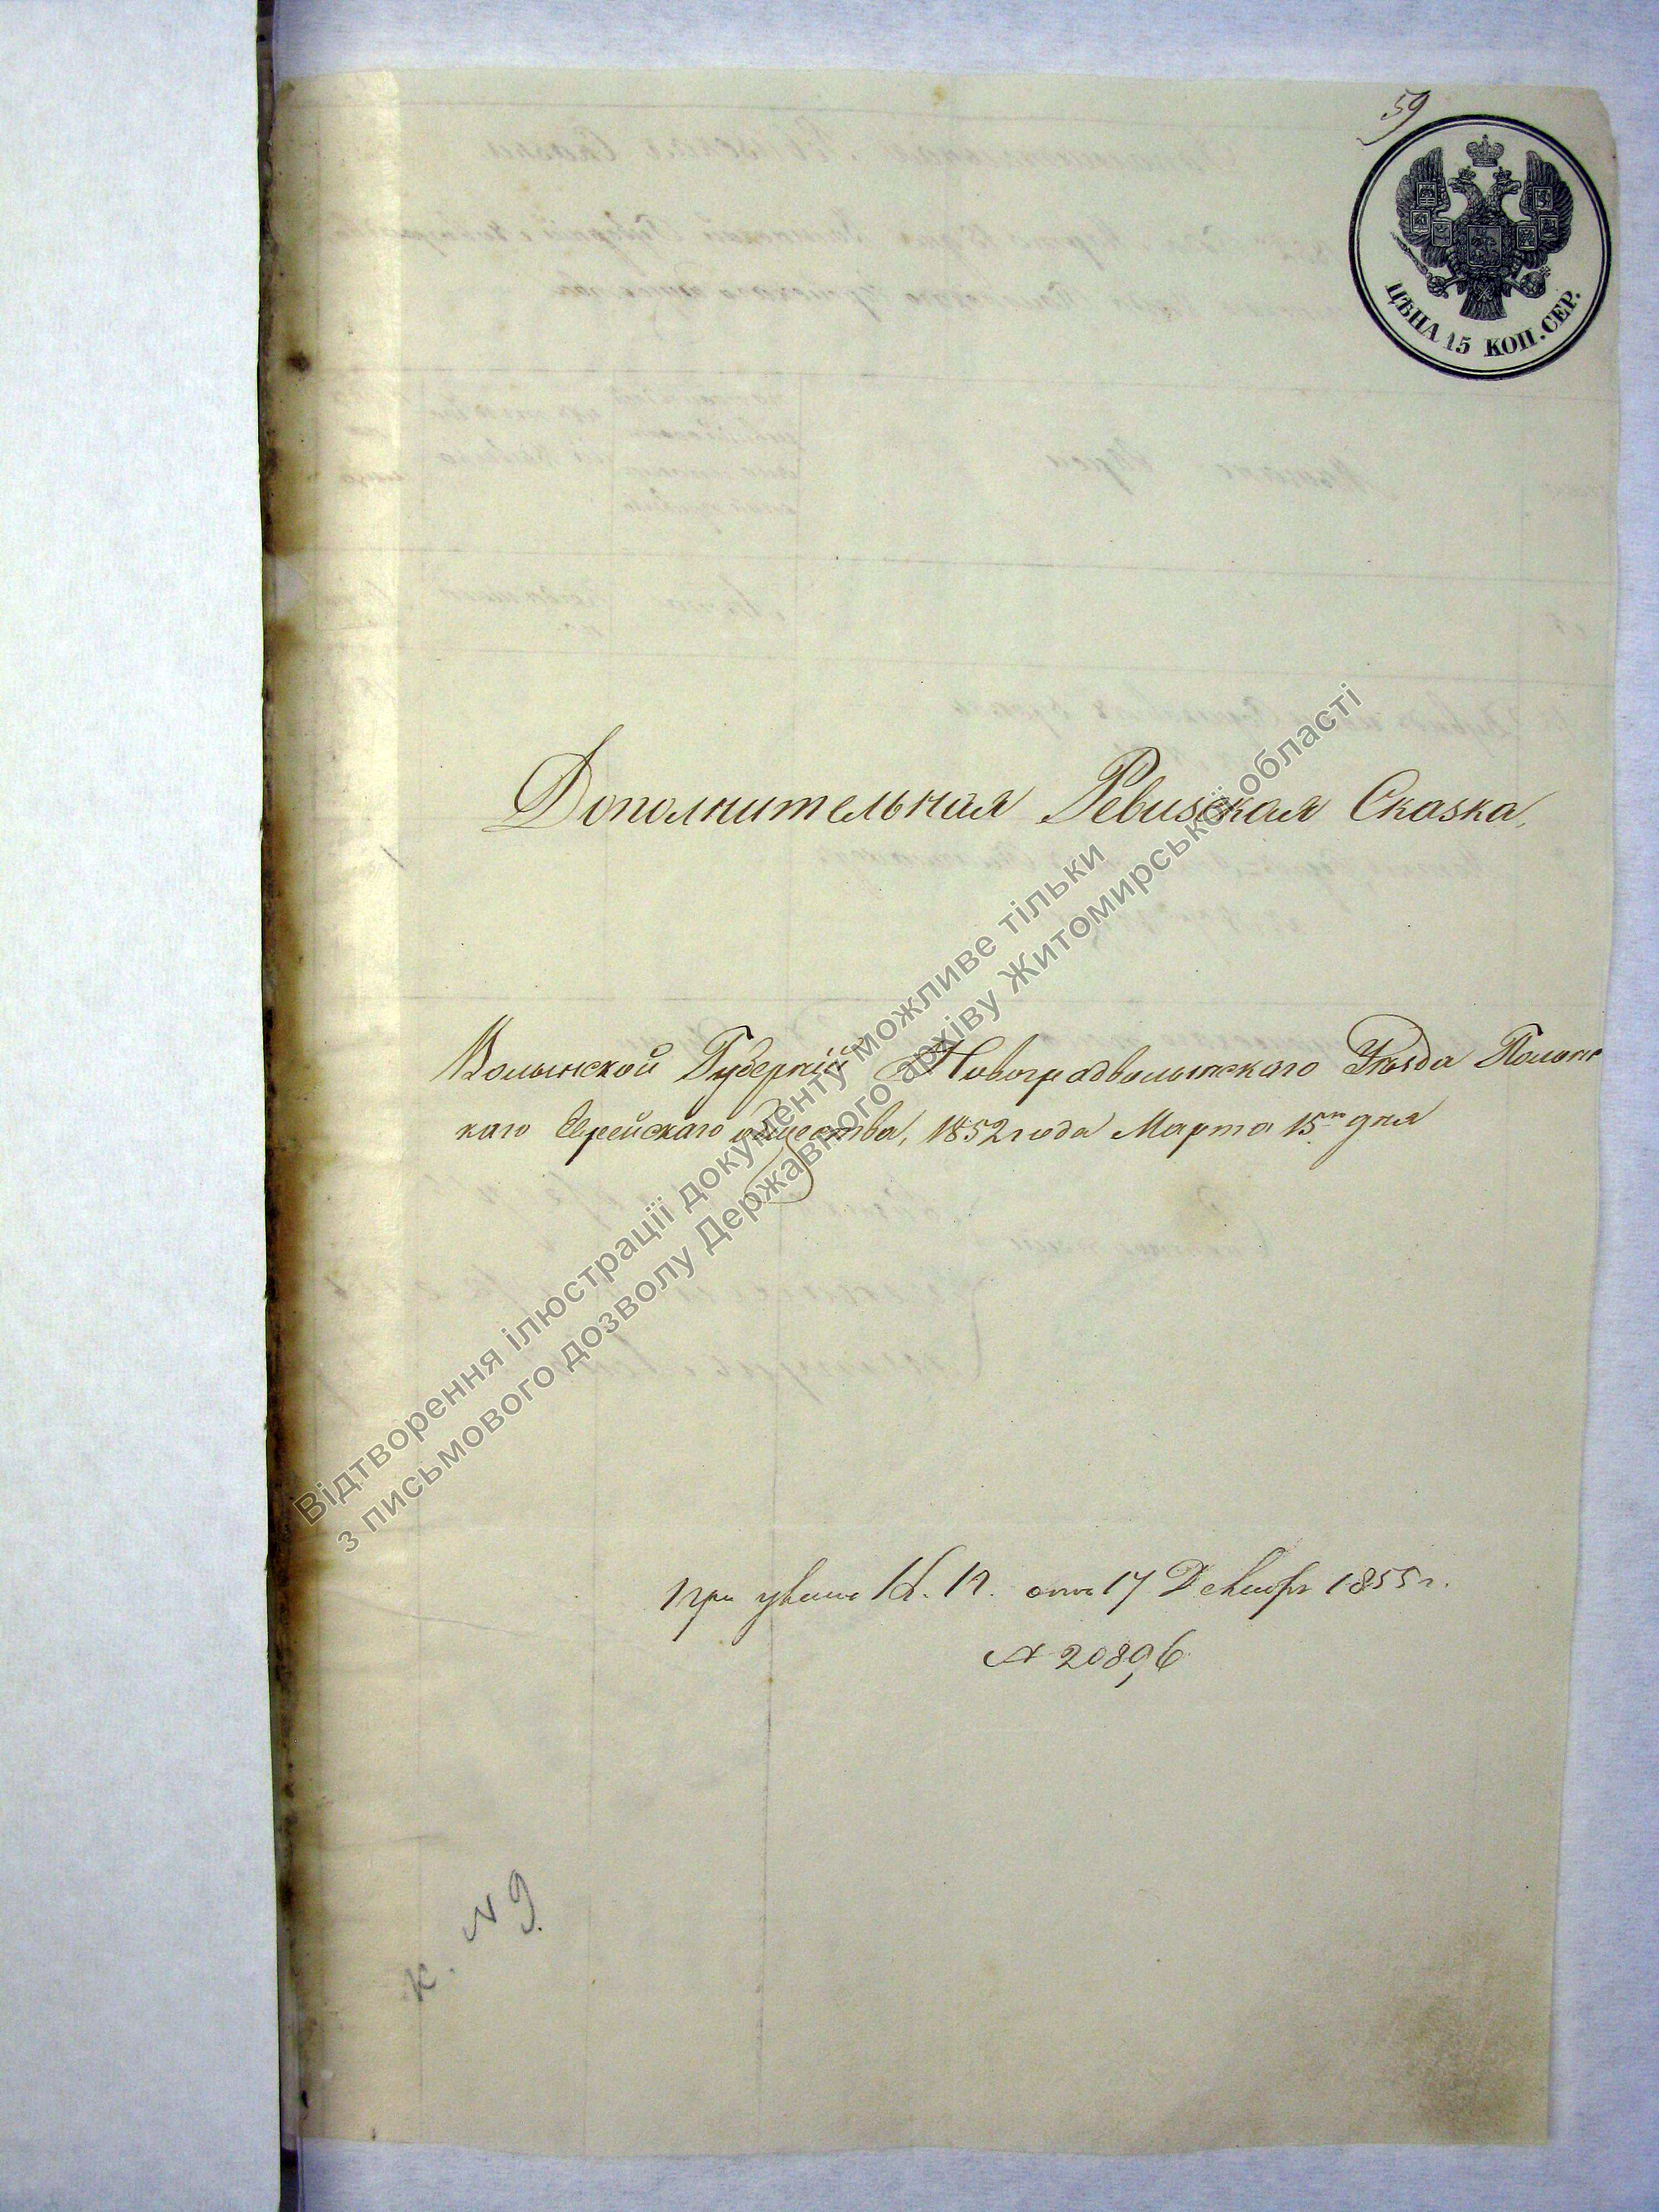 59
ЦѢНА 15 КОП. СЕР.
Дополнительная Ревизская Сказка,
Волынской Губерніи Новоградволынского Уѣзда Полонс
каго Еврейскаго общества, 1852 года Марта 15го дня
При К. П. отъ 17 Декабр 1855 г.
№ 20896
к. N 9.
Відтворення ілюстрації документу можливе тільки
з письмового дозволу Державного архіву Житомирської області